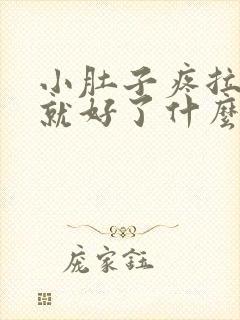 小肚子疼拉
就好了什麼
庞家鈺